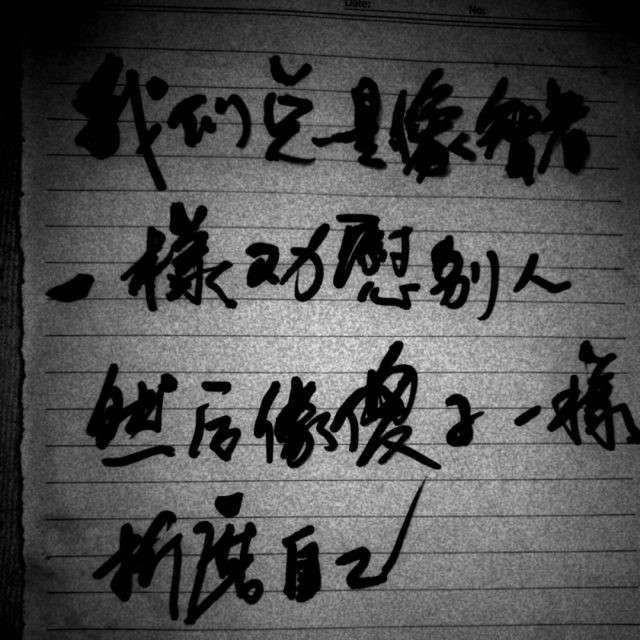 Date: No:
我们总是像智者
一樣劝慰别人
然后像傻子一樣
折磨自己